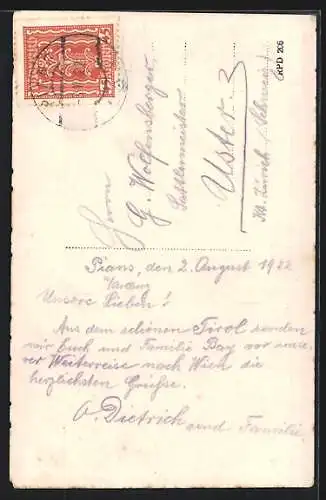 Herrn
G. Wolfensberger
Sattlermeister
Uster
Kt. Zürich (Schweiz)
CRPD 206
Pians, den 2. August 1922
Unsere Lieben!
Aus dem schönen Tirol senden
wir Euch und Familie Bay vor unse-
rer Weiterreise nach Wien die
herzlichsten Grüsse.
O. Dietrich und Familie.